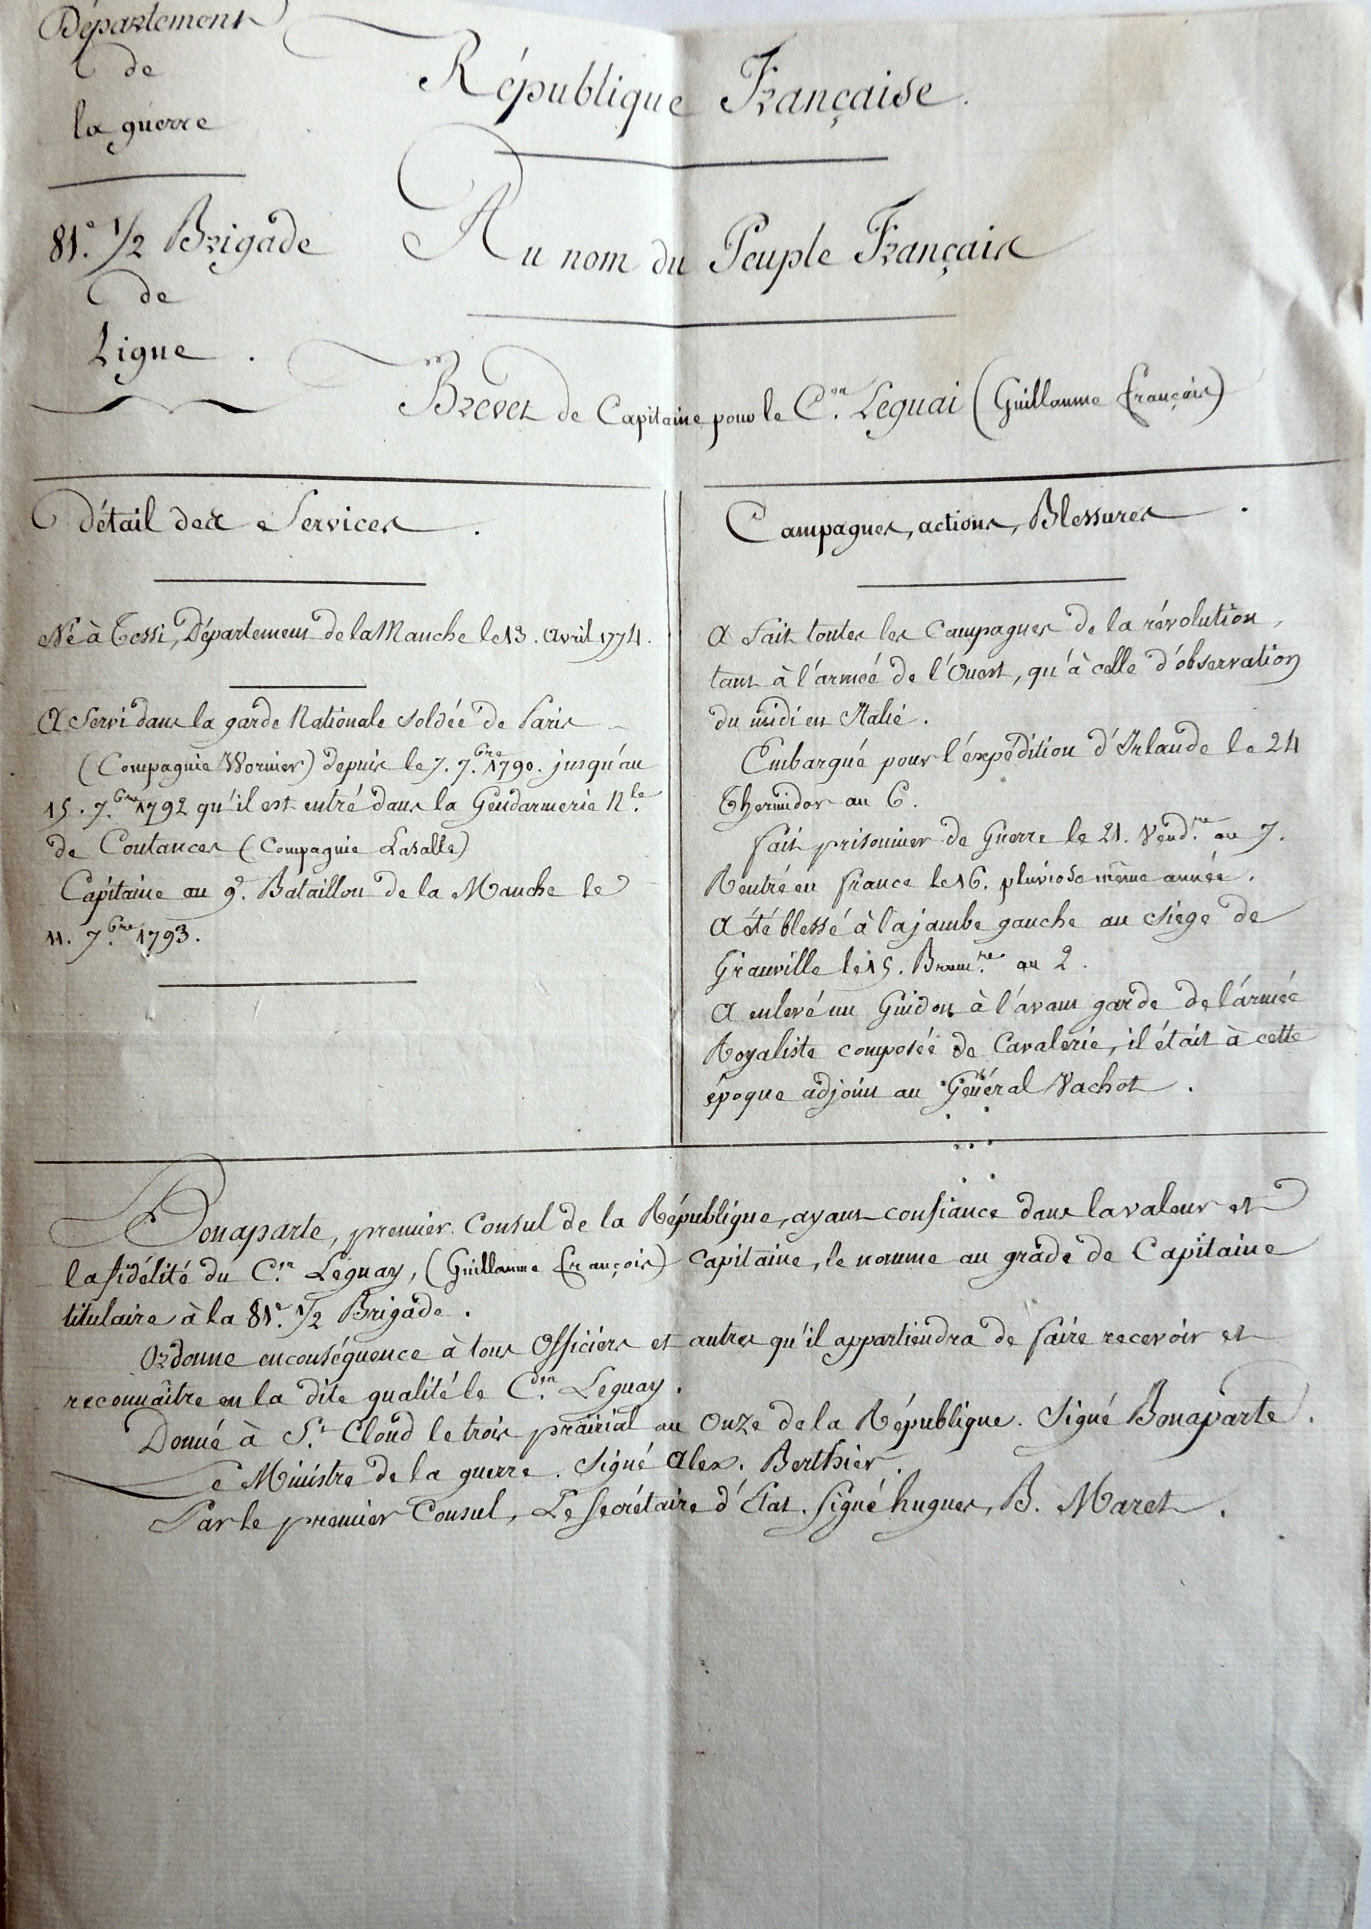 Département
de
la guerre
81.e 1/2 Brigade
de
Ligne .
République Française.
Au nom du Peuple Français
Brevet de Capitaine pour le C.en Leguai (Guillaume françois)
détail des Services .
Né à Tessi, Département de la Manche le 13. avril 1774.
A Servi dans la garde Nationale soldée de Paris
(Compagnie Wormier) depuis le 7. 7.bre 1790. jusqu'au
15. 7.bre 1792 qu'il est entré dans la Gendarmerie N.le
de Coutances (Compagnie Lasalle)
Capitaine au 9.e Bataillon de la Manche le
11. 7.bre 1793.
Campagnes, actions, Blessures .
A fait toutes les Campagnes de la révolution,
tant à l'armée de l'Ouest, qu'à celle d'observation
du midi en Italie.
Embarqué pour l'éxpédition d'Irlande le 24
Thermidor an 6.
fait prisonnier de Guerre le 21. Vend.re an 7.
Rentré en france le 16. pluviose même année.
A été blessé à la jambe gauche au siège de
Granville le 15. Brum.re an 2.
A enlevé un Guidon à l'avant garde de l'armée
Royaliste composée de Cavalerie, il était à cette
époque adjoint au Général Vachot .
Bonaparte, premier Consul de la République, ayant confiance dans la valeur et
la fidélité du C.en Leguay, (Guillaume françois) capitaine, le nomme au grade de Capitaine
titulaire à la 81.e 1/2 Brigade.
Ordonne en conséquence à tous Officiers et autres qu'il appartiendra de faire recevoir et
reconnaître en la dite qualité le C.en Leguay.
Donné à S.t Cloud le trois prairial an Onze de la République. Signé Bonaparte.
Le Ministre de la guerre. Signé Alex. Berthier.
Par le premier Consul, Le Secrétaire d'État. Signé hugues, B. Maret .